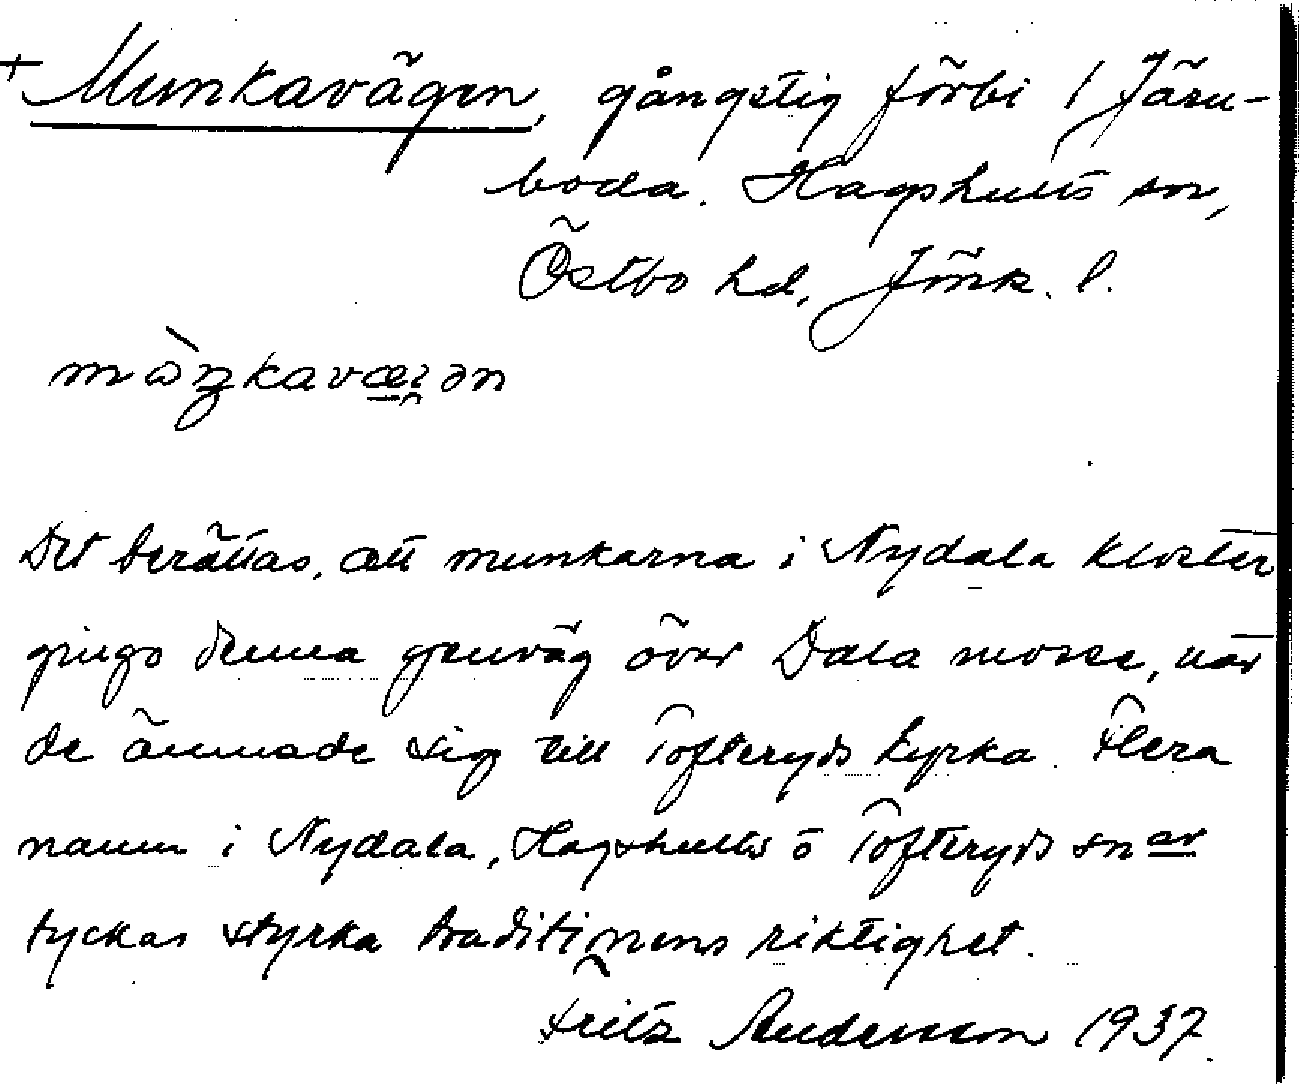 + Munkavägen, gångstig förbi 1 Järu-
boda. Hagshults sn,
Östbo hd, Jönk. l.
mὼŋkavæ̱ı̯ən
Det berättas, att munkarna i Nydala kloster
gingo denna genväg över Dala mosse, när
de ämnade sig till Tofteryds kyrka. Flera
namn i Nydala, Hagshults o Tofteryds snar
tyckas styrka traditionens riktighet.
Fritz Andersson 1937